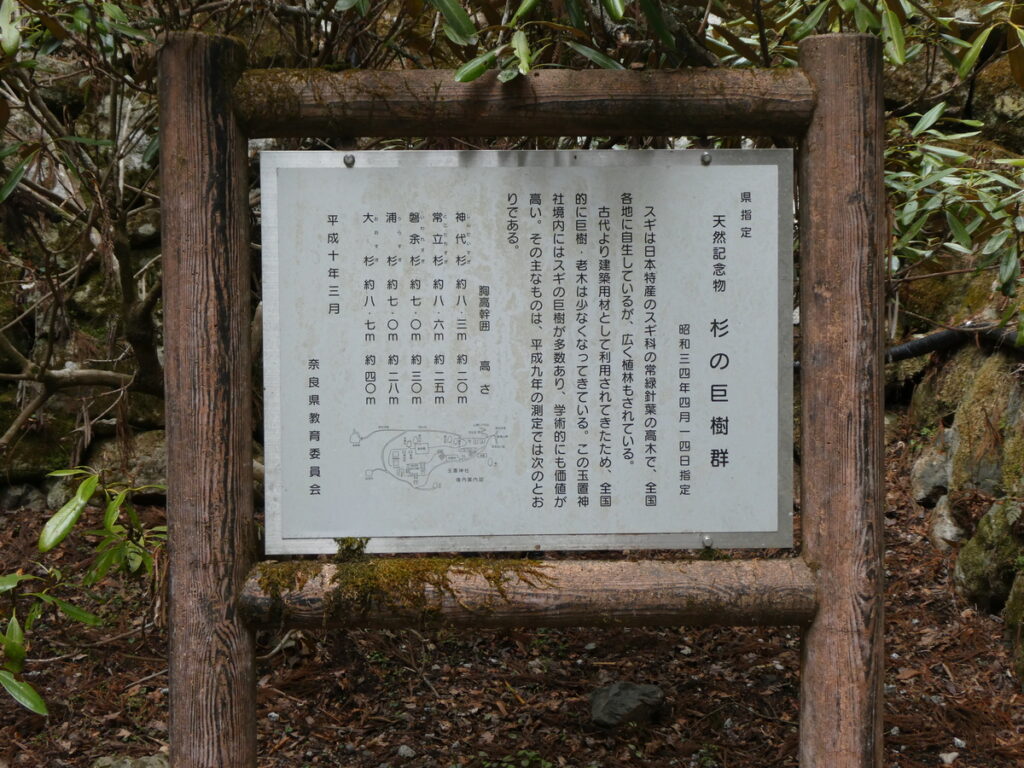 県指定
天然記念物　杉の巨樹群
昭和三四年四月一四日指定
スギは日本特産のスギ科の常緑針葉の高木で、全国
各地に自生しているが、広く植林もされている。
古代より建築用材として利用されてきたため、全国
的に巨樹・老木は少なくなってきている。この玉置神
社境内にはスギの巨樹が多数あり、学術的にも価値が
高い。その主なものは、平成九年の測定では次のとお
りである。
胸高幹囲　高さ
神代杉　約八・三m　約二〇m
常立杉　約八・六m　約二五m
磐余杉　約七・〇m　約三〇m
浦杉　約七・〇m　約二八m
大杉　約八・七m　約四〇m
平成十年三月
奈良県教育委員会
玉置神社
境内案内図